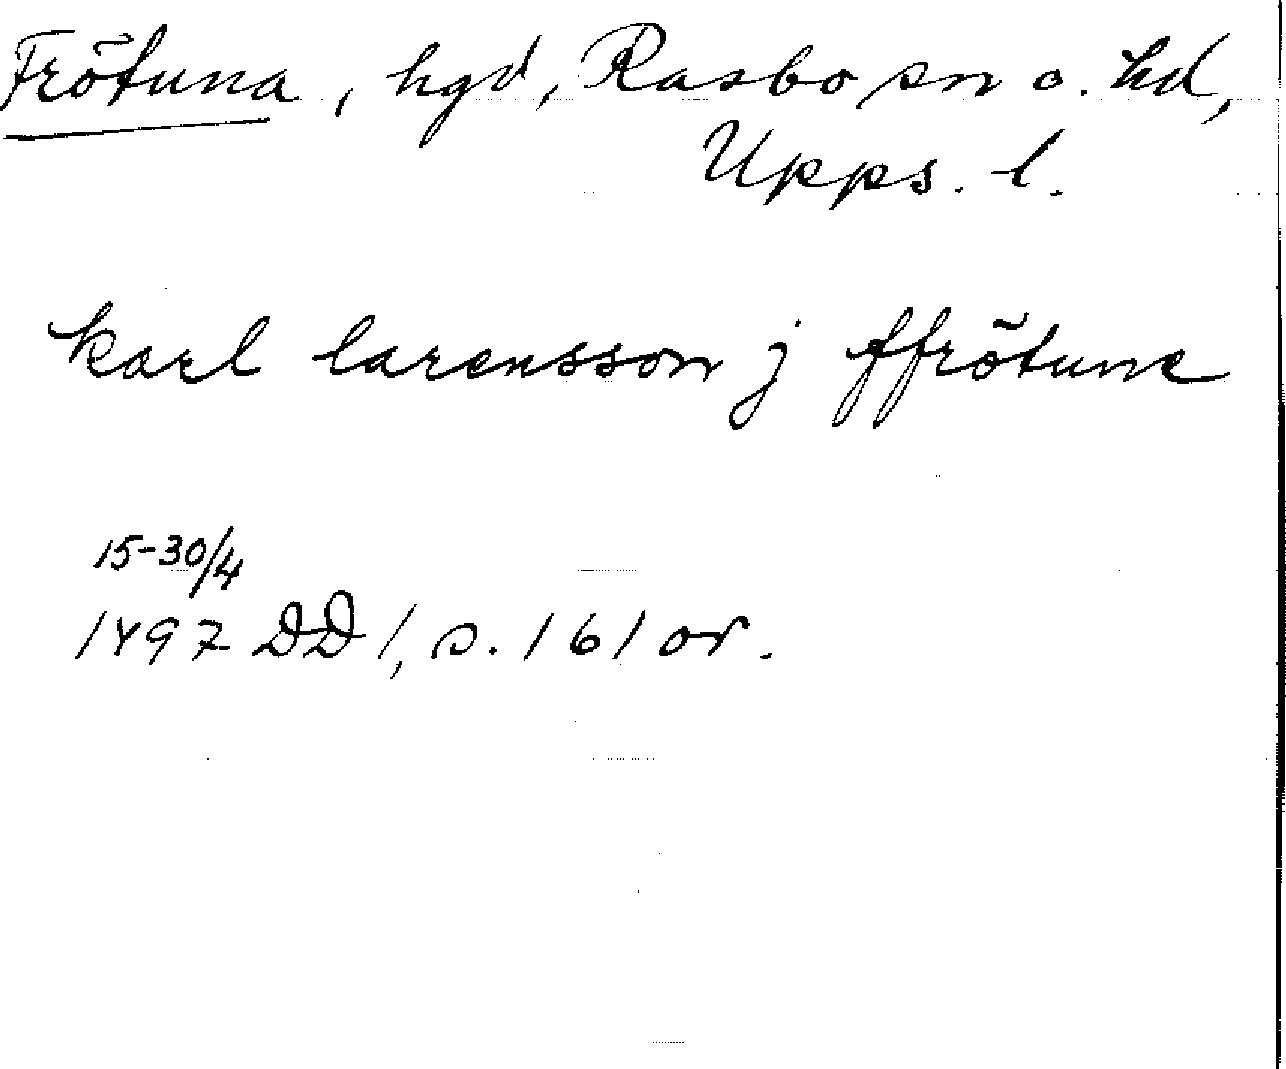 Frötuna, hgd, Rasbo sn o. hd,
Upps. l.
karl larensson j ffrötune
15-30/4
1497 DD 1, s. 161 or.